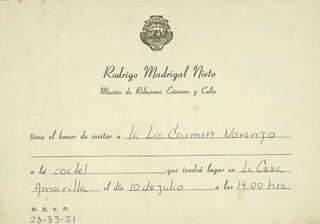 Rodrigo Madrigal Nieto
Ministro de Relaciones Exteriores y Culto
tiene el honor de invitar a la Lic Carmen Naranjo
a la coctel que tendrá lugar en La Casa
Amarilla el día 10 de julio a las 19:00 hrs
R. S. V. P.
23-33-51